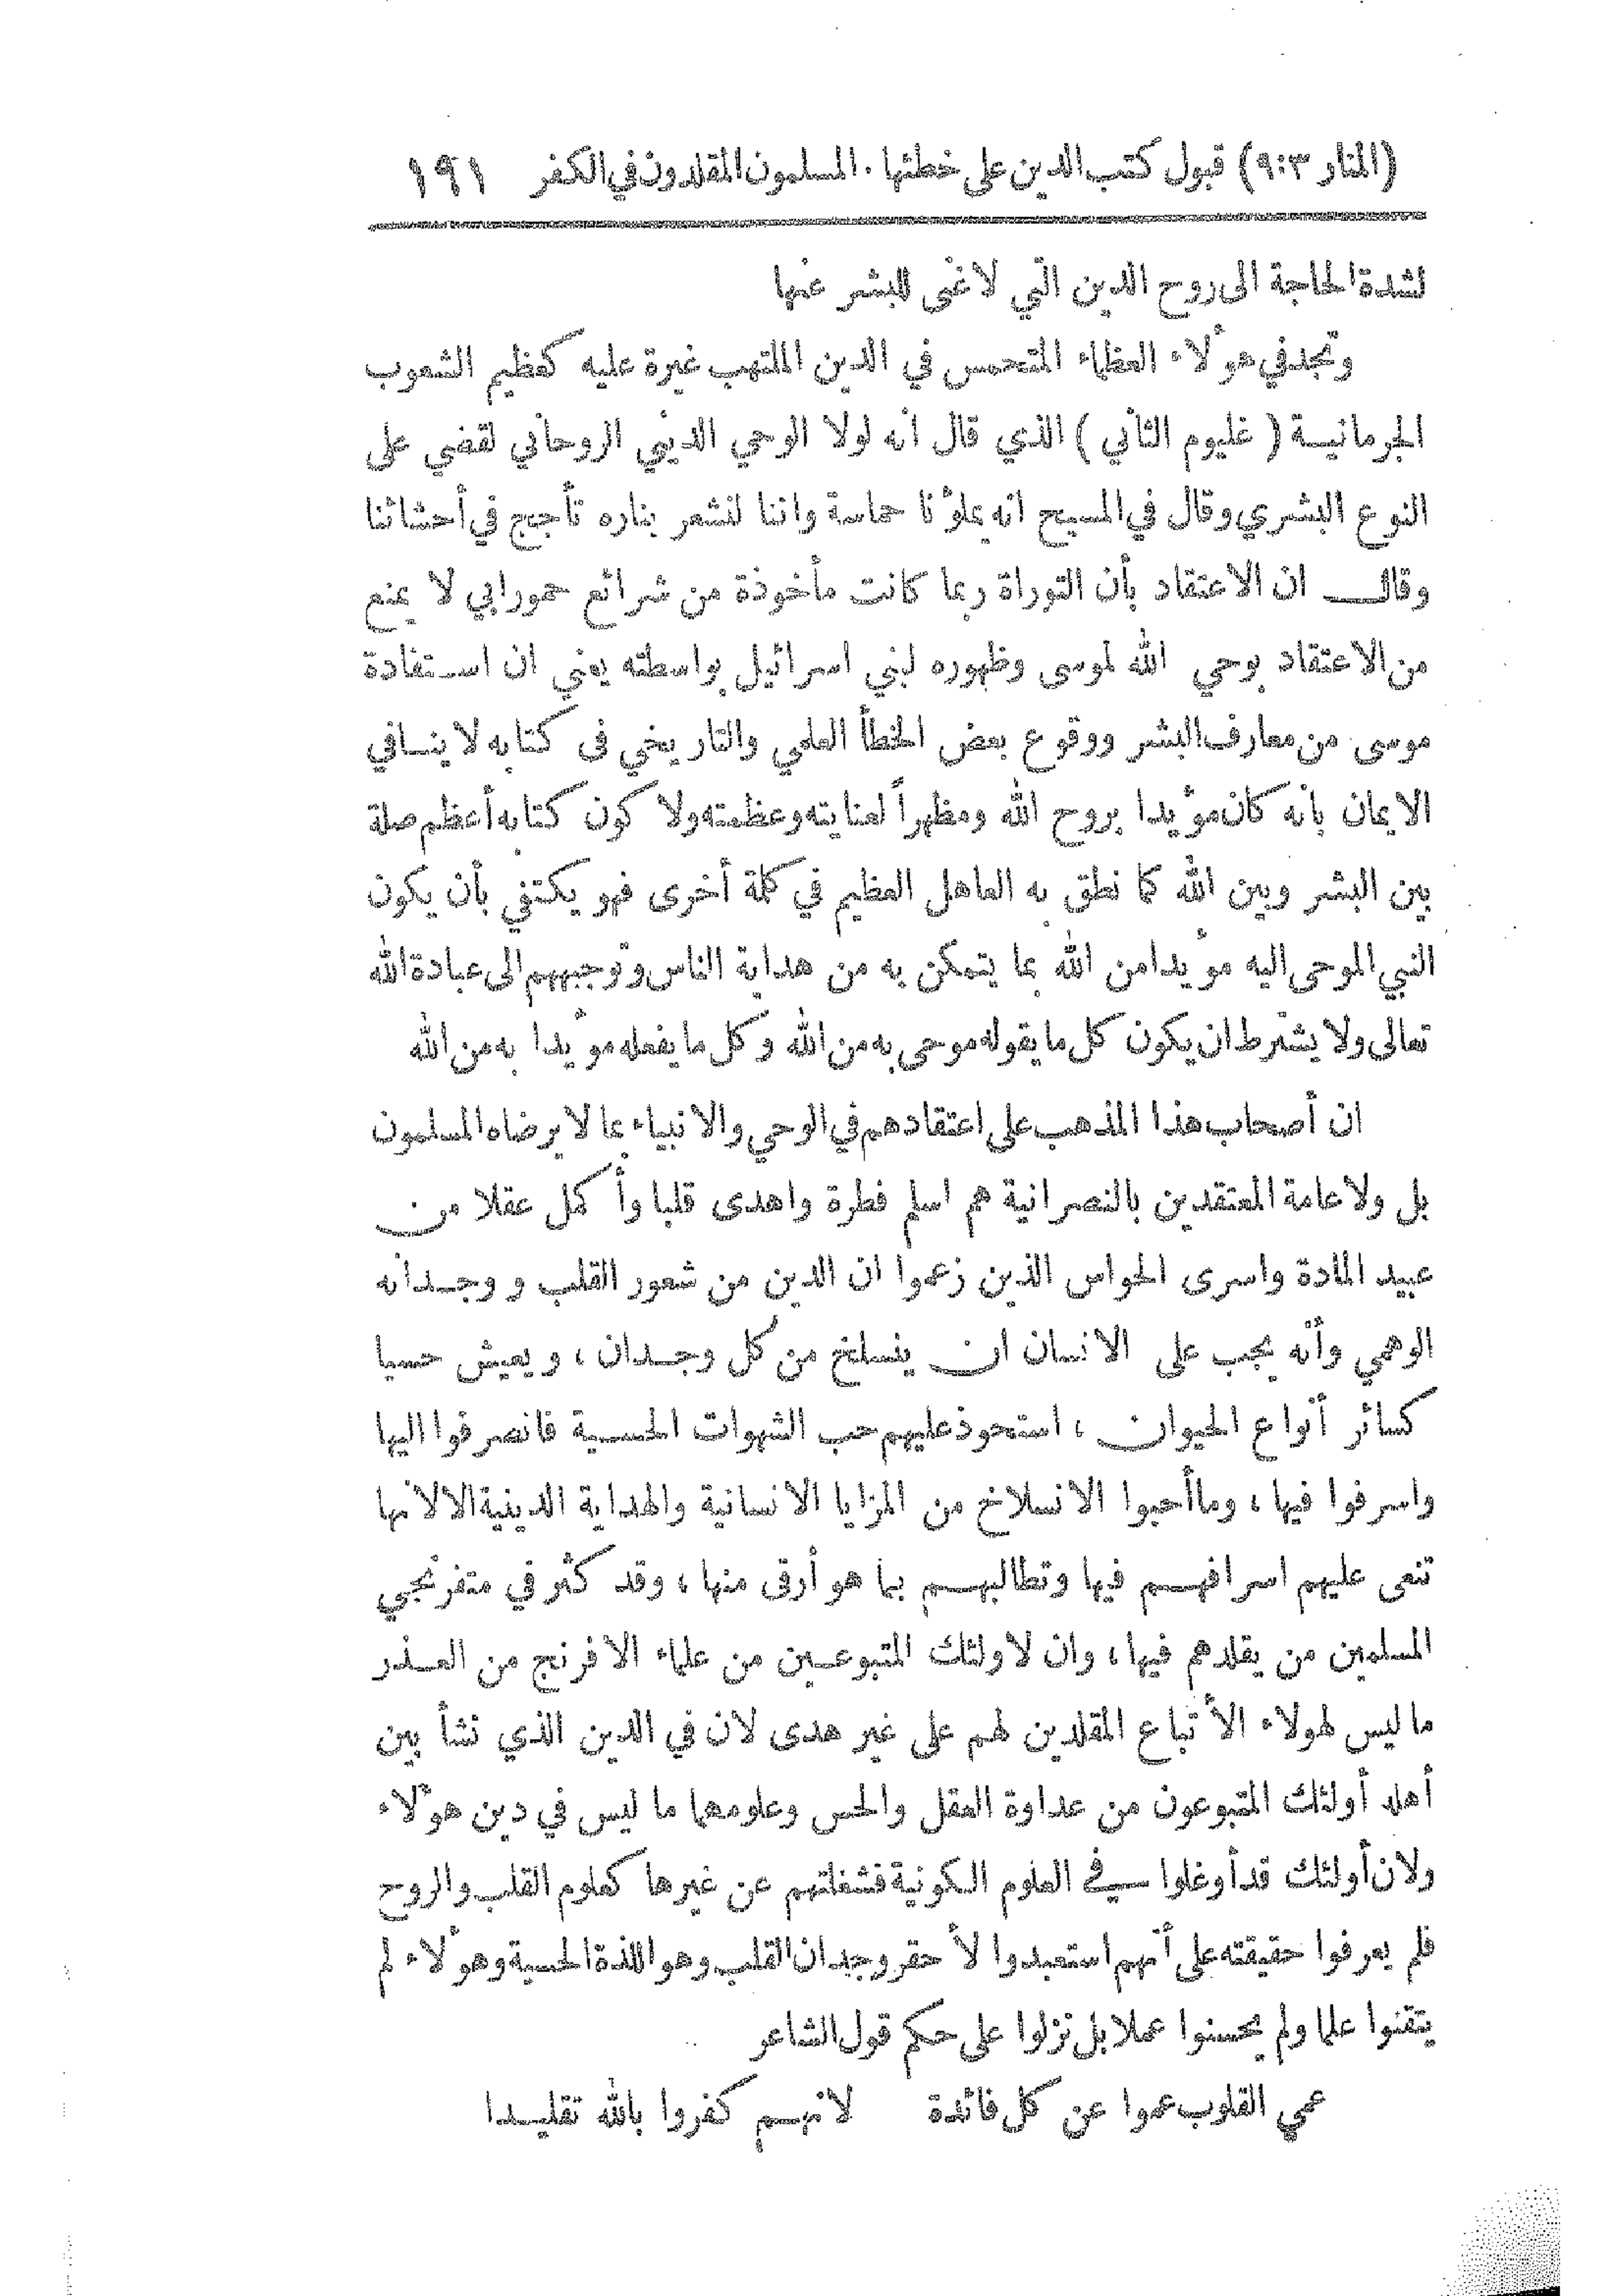 (المنار ٩:٣) قبول كتب الدين على خطئها . المسلمون المقلدون في الكفر ١٩١
لشدة الحاجة الى روح الدين التي لا غنى للبشر عنها
وتجد في هؤلاء العظماء المتحمس في الدين الملتهب غيرة عليه كعظيم الشعوب
الجرمانية ( غليوم الثاني ) الذي قال انه لولا الوحي الديني الروحاني لقضي على
النوع البشري وقال في المسيح انه يملؤنا حماسة واننا لنشعر بناره تأجج في أحشائنا
وقال ان الاعتقاد بأن التوراة ربما كانت مأخوذة من شرائع حمورابي لا يمنع
من الاعتقاد بوحي الله لموسى وظهوره لبني اسرائيل بواسطته يعني ان استفادة
موسى من معارف البشر ووقوع بعض الخطأ العلمي والتاريخي في كتابه لا ينافي
الايمان بأنه كان مؤيدا بروح الله ومظهراً لعنايته وعظمته ولا كون كتابه أعظم صلة
بين البشر وبين الله كما نطق به العاهل العظيم في كلمة أخرى فهو يكتفي بأن يكون
النبي الموحى اليه مؤيدا من الله بما يتمكن به من هداية الناس وتوجيههم الى عبادة الله
تعالى ولا يشترط ان يكون كل ما يقوله موحى به من الله وكل ما يفعله مؤيدا به من الله
ان أصحاب هذا المذهب على اعتقادهم في الوحي والانبياء بما لا يرضاه المسلمون
بل ولا عامة المعتقدين بالنصرانية هم اسلم فطرة واهدى قلبا وأكمل عقلا من
عبيد المادة واسرى الحواس الذين زعموا ان الدين من شعور القلب و وجدانه
الوهمي وأنه يجب على الانسان ان ينسلخ من كل وجدان ، ويعيش حسيا
كسائر أنواع الحيوان ، استحوذ عليهم حب الشهوات الحسية فانصرفوا اليها
واسرفوا فيها ، وما أحبوا الانسلاخ من المزايا الانسانية والهداية الدينية الا لانها
تنعى عليهم اسرافهم فيها وتطالبهم بما هو أرقى منها ، وقد كثر في متفرنجي
المسلمين من يقلدهم فيها ، وان لاولئك المتبوعين من علماء الافرنج من العذر
ما ليس لهولاء الأتباع المقلدين لهم على غير هدى لان في الدين الذي نشأ بين
أهله أولئك المتبوعون من عداوة العقل والحس وعلومهما ما ليس في دين هؤلاء
ولان أولئك قد أوغلوا في العلوم الكونية فشغلتهم عن غيرها كعلوم القلب والروح
فلم يعرفوا حقيقته على أنهم استعبدوا لأحقر وجدان القلب وهو اللذة الحسية وهؤلاء لم
يتقنوا علما ولم يحسنوا عملا بل نزلوا على حكم قول الشاعر
عمي القلوب عموا عن كل فائدة لانهم كفروا بالله تقليدا